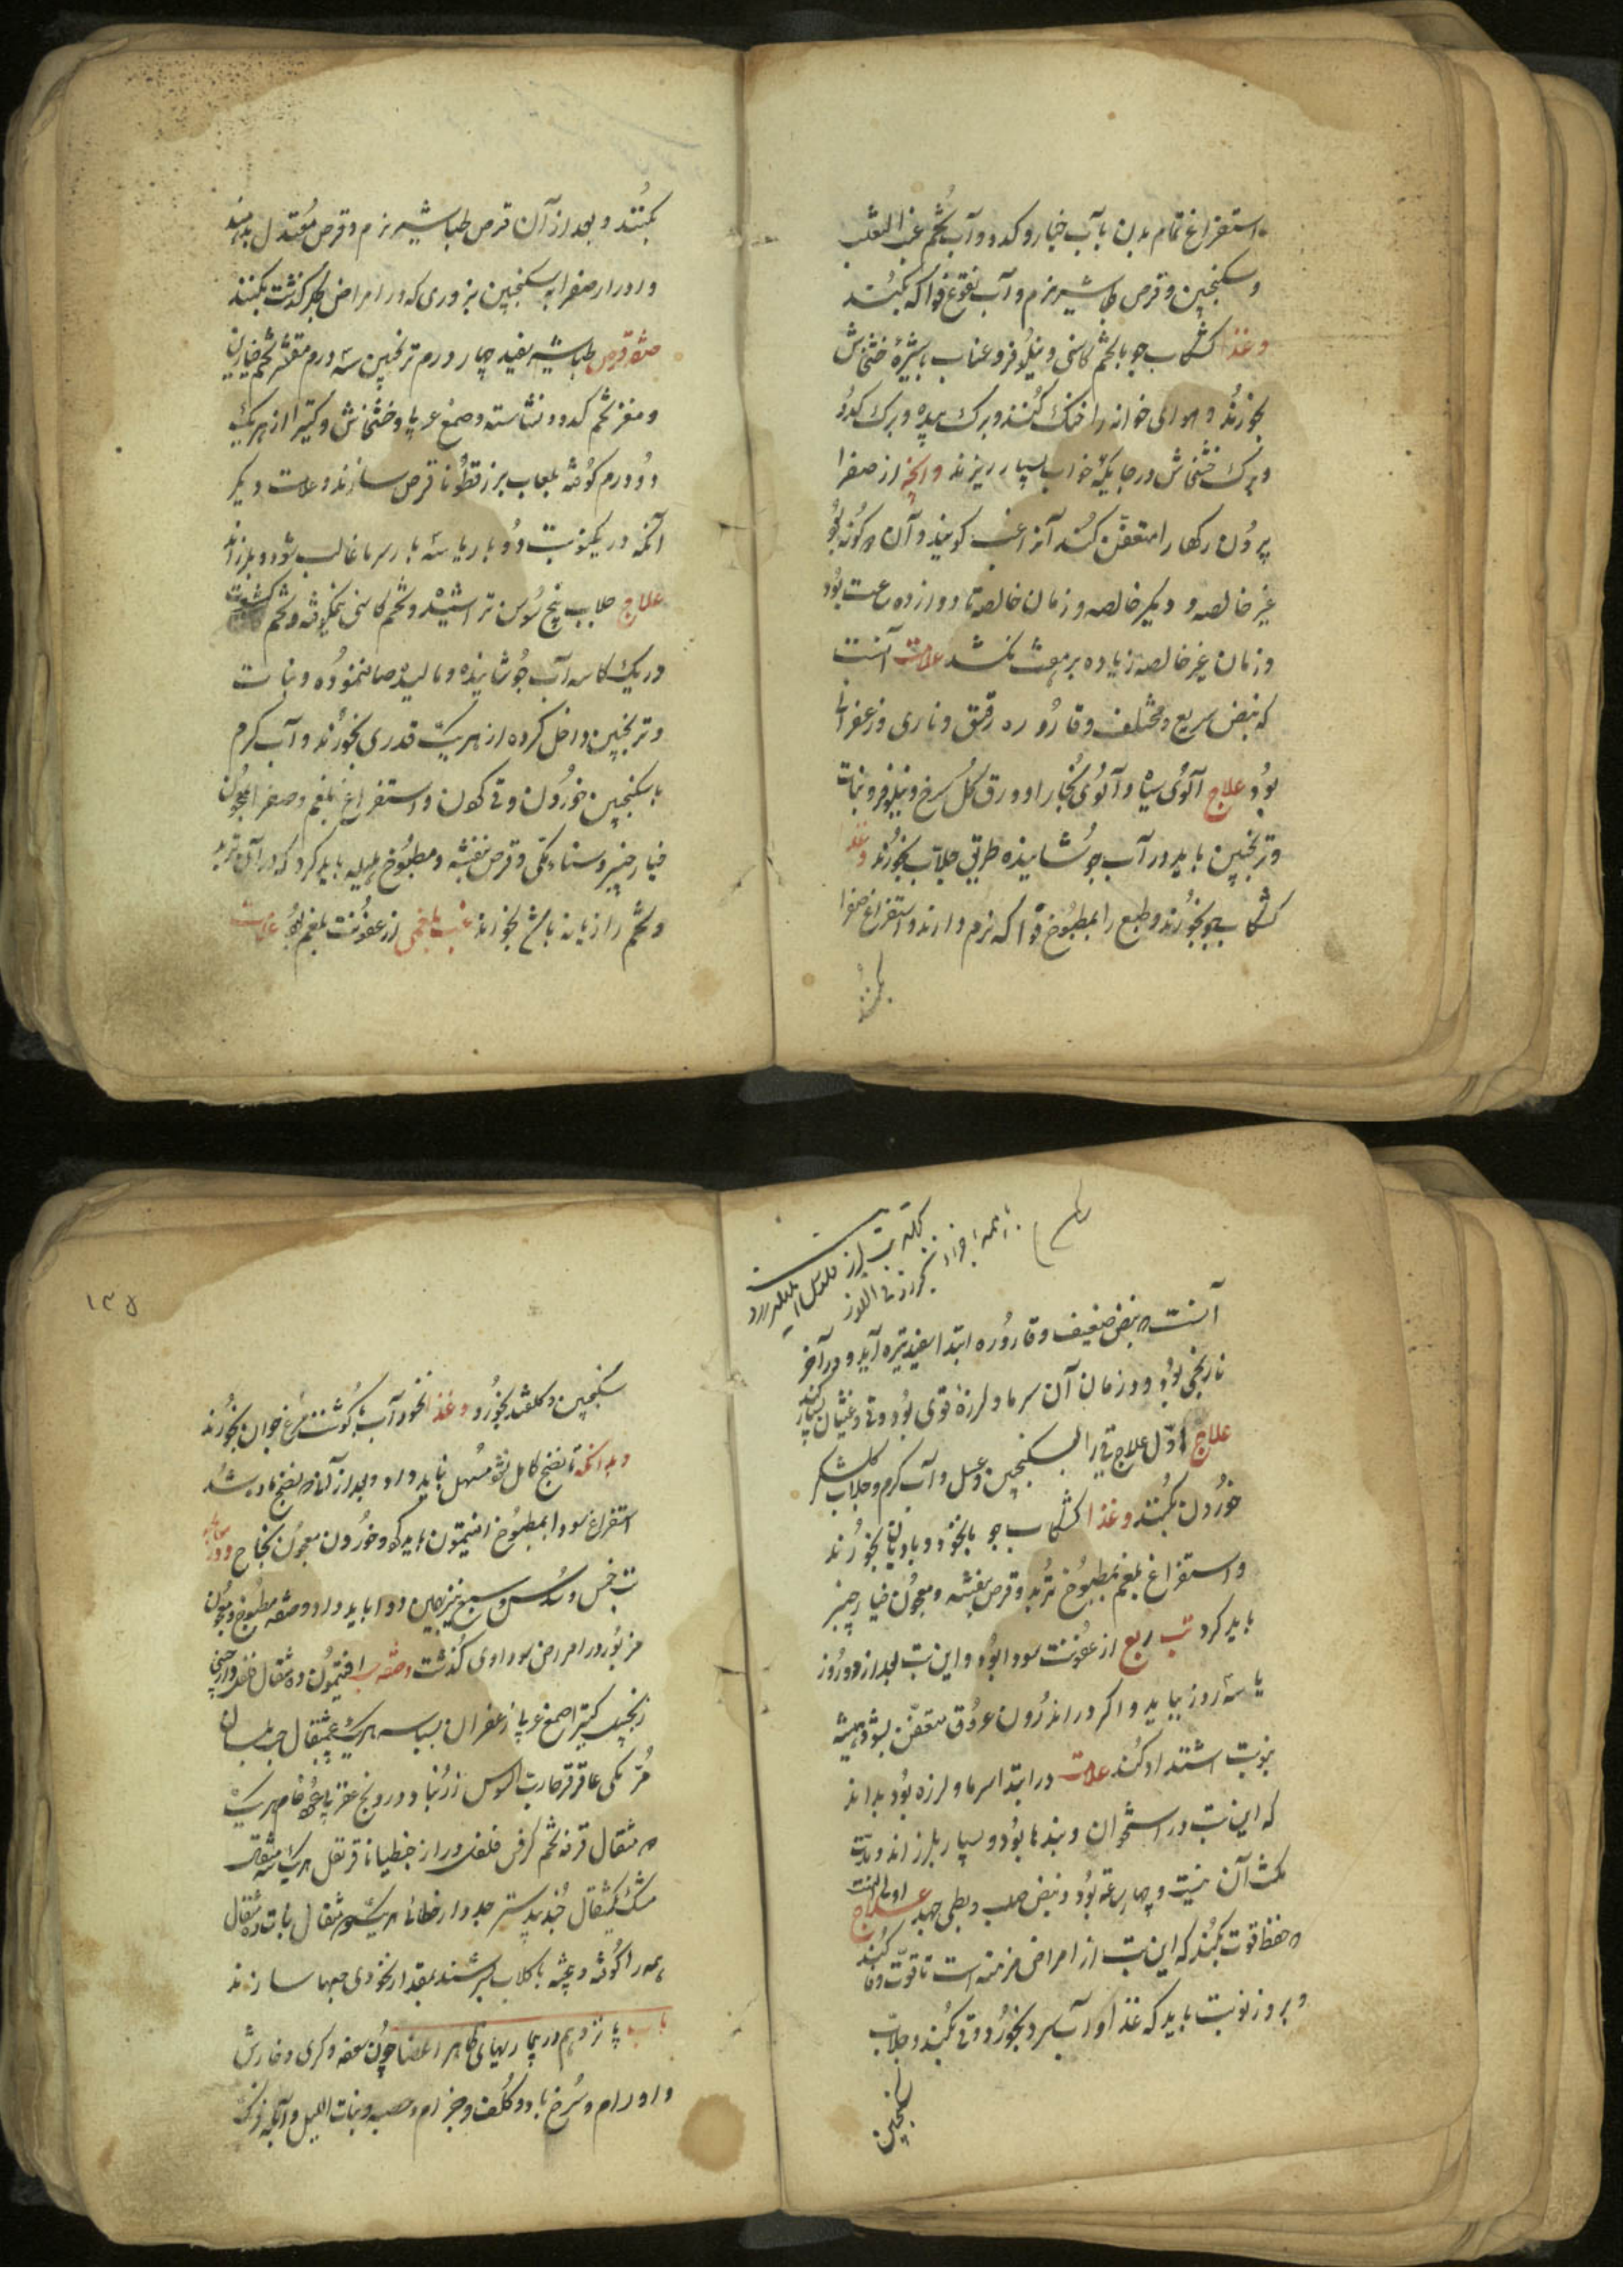 استفراغ تمام بدن بآب خیار و کدو و آب تخم عنب الثعلب
و سکنجبین و قرص طباشیر نرم و آب نقوع فواکه بکنند
و غذا کشکاب جو با تخم کاسنی و نیلوفر و عناب با شیرهٔ خشخاش
بخورند و هوای خوانه را خنک کنند و برک بید و برک کدو
و برک خشخاش در جایکه خواب بسیار ریزند و آنچه از صفرا
بیرون رکها را متعفن کند آنرا غب کویند و آن دو کونه بود
غیر خالصه و دیکر خالصه و زمان خالصه تا دوازده ساعت بود
و زمان غیر خالصه زیاده برین باشد علامت آنست
که نبض سریع و مختلف و قاروره رقیق و ناری و زعفرانی
بود علاج آلوی سیاه و آلوی بخارا و ورق کل سرخ و نیلوفر و نبات
و ترنجبین باید در آب جوشانیده طریق جلاب بخورند و غذا
کشکاب جو بخورند و طبع را بمطبوخ فواکه نرم دارند و استفراغ صفرا
بکنند
بکنند و بعد از آن قرص طباشیر نرم و قرص معتدل بدهند
و ادرار صفرا به سکنجبین بزوری که در امراض جکر کذشت بکنند
صفة قرص طباشیر سفید چهار درم ترنجبین سه درم مقشر تخم خیارین
و مغز تخم کدو و نشاسته و صمغ عربی و خشخاش و کتیرا از هر یک
دو درم کوفته بلعاب بزر قطونا قرص سازند و علامت دیکر
آنکه در یک نوبت دو بار یا سه بار سرما غالب شود و بلرزاند
علاج جلاب بیخ سوس تراشیده و تخم کاسنی نیمکوفته و تخم کشوث
در یک کاسه آب جوشانیده و مالیده صاف نموده و نبات
و ترنجبین داخل کرده از هر یک قدری بخورند و آب کرم
با سکنجبین خوردن و قی کردن و استفراغ بلغم و صفرا بمعجون
خیار چنبر و سناء مکی و قرص بنفشه و مطبوخ هلیله باید کرد که در آن تربد
و تخم رازیانه باشد بخورند غب بلغمی از عفونت بلغم بود علامت
آنست که نبض ضعیف و قاروره ابتدا سفید تیره آید و در آخر
نارنجی بود و در زمان آن سرما و لرزهٔ قوی بود و قی و غثیان بسیار کند
علاج اول علاج قی را بسکنجبین و عسل و آب کرم و جلاب کلشکر
خوردن بکنند و غذا کشکاب جو با نخود و بادیان بخورند
و استفراغ بلغم بمطبوخ تربد و قرص بنفشه و معجون خیار چنبر
باید کرد تب ربع از عفونت سودا بود و این تب بعد از دو روز
یا سه روز بیاید و اکر در اندرون عروق متعفن بشود همیشه
بنوبت اشتداد کند علامت در ابتدا سرما و لرزه بود بداند
که این تب در استخوان و بندها بود و بسیار بلرزاند و مدت
مکث آن بیست و چهار ساعة بود و نبض صلب و بطی جهد علاج اولی آنست
که حفظ قوت بکنند که این تب از امراض مزمنه است تا قوت وفا کند
و بروز نوبت باید که غذا و آب سرد نخورد و قی بکنند و جلاب
سکنجبین
۱۳۵
سکنجبین و کلقند بخورد و غذا نخود آب با کوشت مرغ جوان بخورند
و بدانکه تا نضج کامل نشود مسهل نباید داد و بعد از آنکه نضج ماده شد
استفراغ سودا بمطبوخ افتیمون باید کرد و خوردن معجون نجاح و در
تب خمس و سدس و سبع نیز همین دوا باید داد و صفه مطبوخ و معجون
مزبور در امراض سوداوی کذشت صفه حب افتیمون ده مثقال دارچینی
زنجبیل کتیرا صمغ عربی زعفران بسباسه هر یک مثقال حب بلسان
مر مکی عاقرقرحا رب السوس زرنباد درونج عقربی عود خام هر یک
دو مثقال قرفه تخم کرفس فلفل دراز جنطیانا قرنفل هر یک سه مثقال
مشک یکمثقال جندبیدستر جدوار خطائی هر یک مثقال نبات ده مثقال
همه را کوفته و بیخته با کلاب بسرشند بمقدار نخودی حبها سازند
باب پانزدهم در بیماریهای ظاهر اعضا چون سعفه و کری و خارش
و اورام و سرخ باد و کلف و جزام و حصبه و بنات اللیل و آبله فرنک